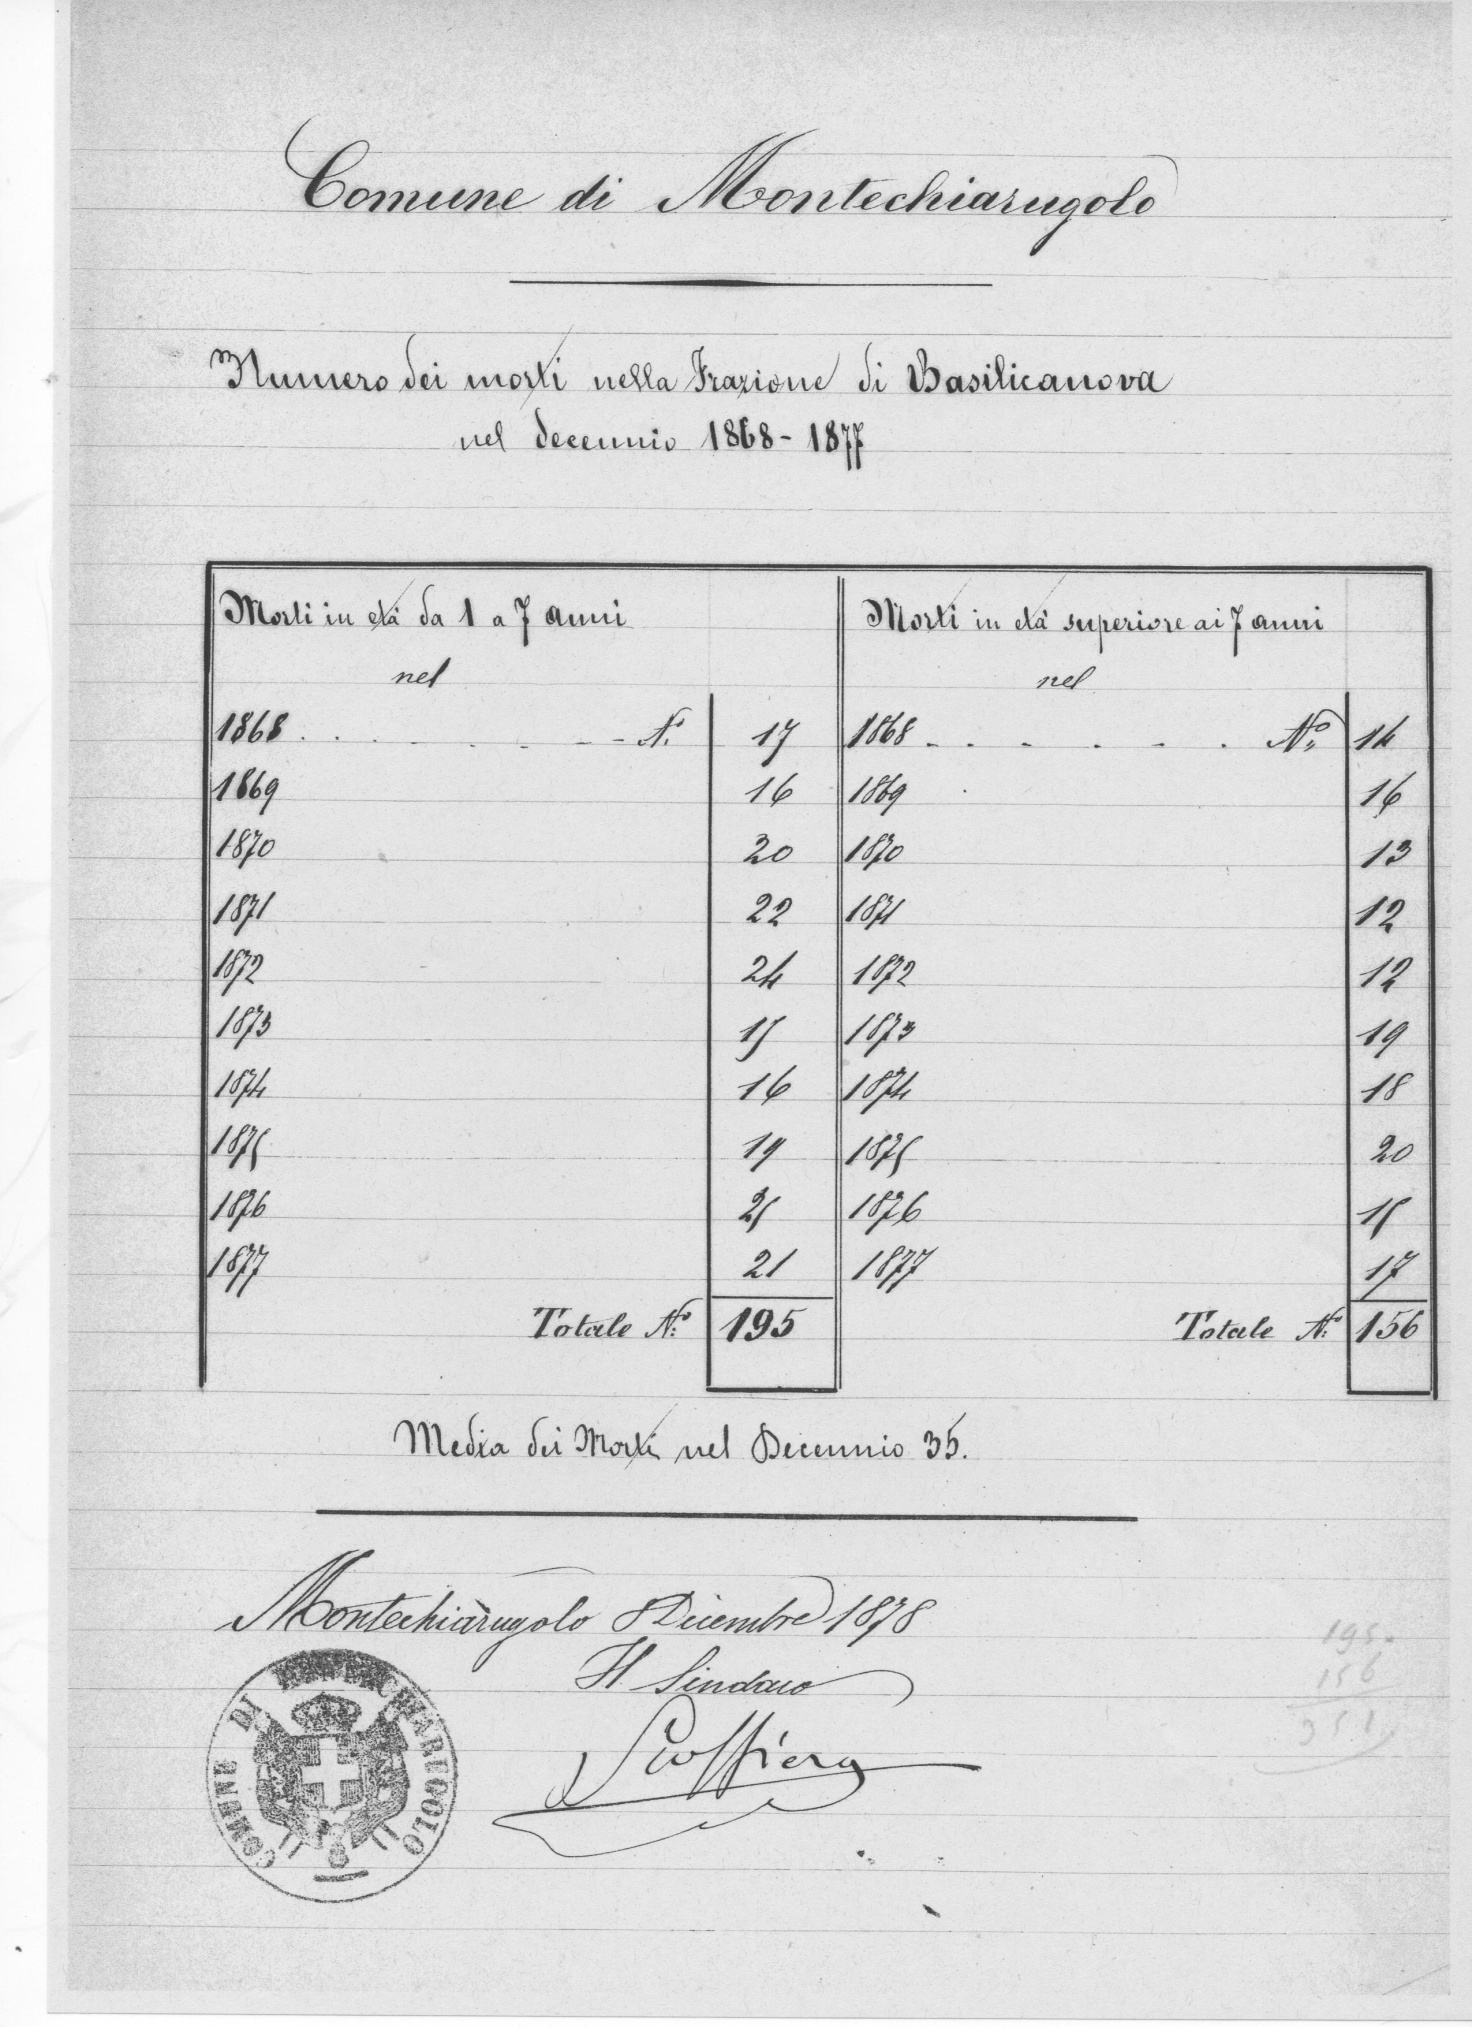 Comune di Montechiarugolo
Numero dei morti nella Frazione di Basilicanova
nel decennio 1868 - 1877
Morti in età da 1 a 7 anni
nel
Morti in età superiore ai 7 anni
nel
1868 . . . - - . - - - N. 17 1868 - . - . - . Nº 14
1869 16 1869 16
1870 20 1870 13
1871 22 1871 12
1872 24 1872 12
1873 15 1873 19
1874 16 1874 18
1875 19 1875 20
1876 25 1876 15
1877 21 1877 17
Totale Nº 195 Totale Nº 156
Media dei Morti nel Decennio 35.
Montechiarugolo 8 Dicembre 1878
Il Sindaco
COMUNE DI MONTECHIARUGOLO
195.
156
351